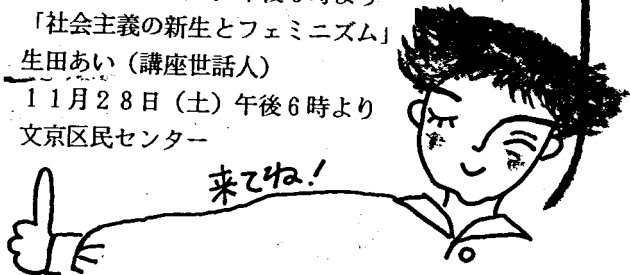 「社会主義の新生とフェミニズム」
生田あい(講座世話人)
11月28日(土)午後6時より
文京区民センター
来てね!